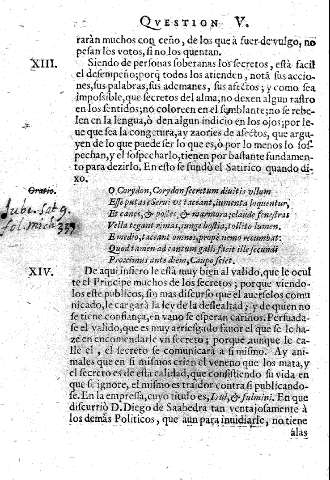 QVESTION V.
rarán muchos con ceño, de los que à fuer de vulgo, no
pesan los votos, si no los quentan.
XIII. Siendo de personas soberanas los secretos, està facil
el desempeño; porq̃ todos los atienden, notã sus accio
nes, sus palabras, sus ademanes, sus afectos; y como sea
impossible, que secretos del alma, no dexen algun rastro
en los sentidos; no coloreen el semblante; no se rebe-
len en la lengua, ò den algun indicio en los ojos; por le
ue que sea la congetura, ay zaories de afectos, que arguyen
de lo que puede ser lo que es, ò por lo menos lo sos-
pechan, y el sospecharlo, tienen por bastante fundamen-
to para dezirlo. En esto se fundò el Satirico quando di-
xo.
O Corydon, Corydon secretum diuitis vllum
Esse putas? Serui vt taceant, iumenta loquentur,
Et canes, & postes, & marmora; claude fenestras
Vella tegant rimas, iunge hostia, tollito lumen.
E medio, taceant omnes, propè nemo recumbat:
Quod tamen ad cantum galli facit ille secundi
Proximus ante diem, Caupo sciet.
Iube. Sat 9.
XIV. De aqui infiero le està muy bien al valido, que le ocul
te el Principe muchos de los secretos; porque viendo-
los este publicos, sin mas discurso que el auerselos comu
nicado, le cargarà la ley de la deslealtad; y de quien no
se tiene confiança, en vano se esperan cariños. Persuada-
se el valido, que es muy arriesgado fauor el que se le ha-
ze en encomendarle vn secreto; porque aunque le ca-
lle el, el secreto se comunicarà a si mismo. Ay ani-
males que en si mismos crian el veneno que los mata, y
el secreto es de esta calidad, que consistiendo su vida en
que se ignore, el mismo es traidor contra si publicando-
se. En la empressa, cuyo titulo es, & fulmini. En que
discurriò D. Diego de Saabedra tan ventajosamente à
los demàs Politicos, que aun para inuidiarle, no tiene
alas